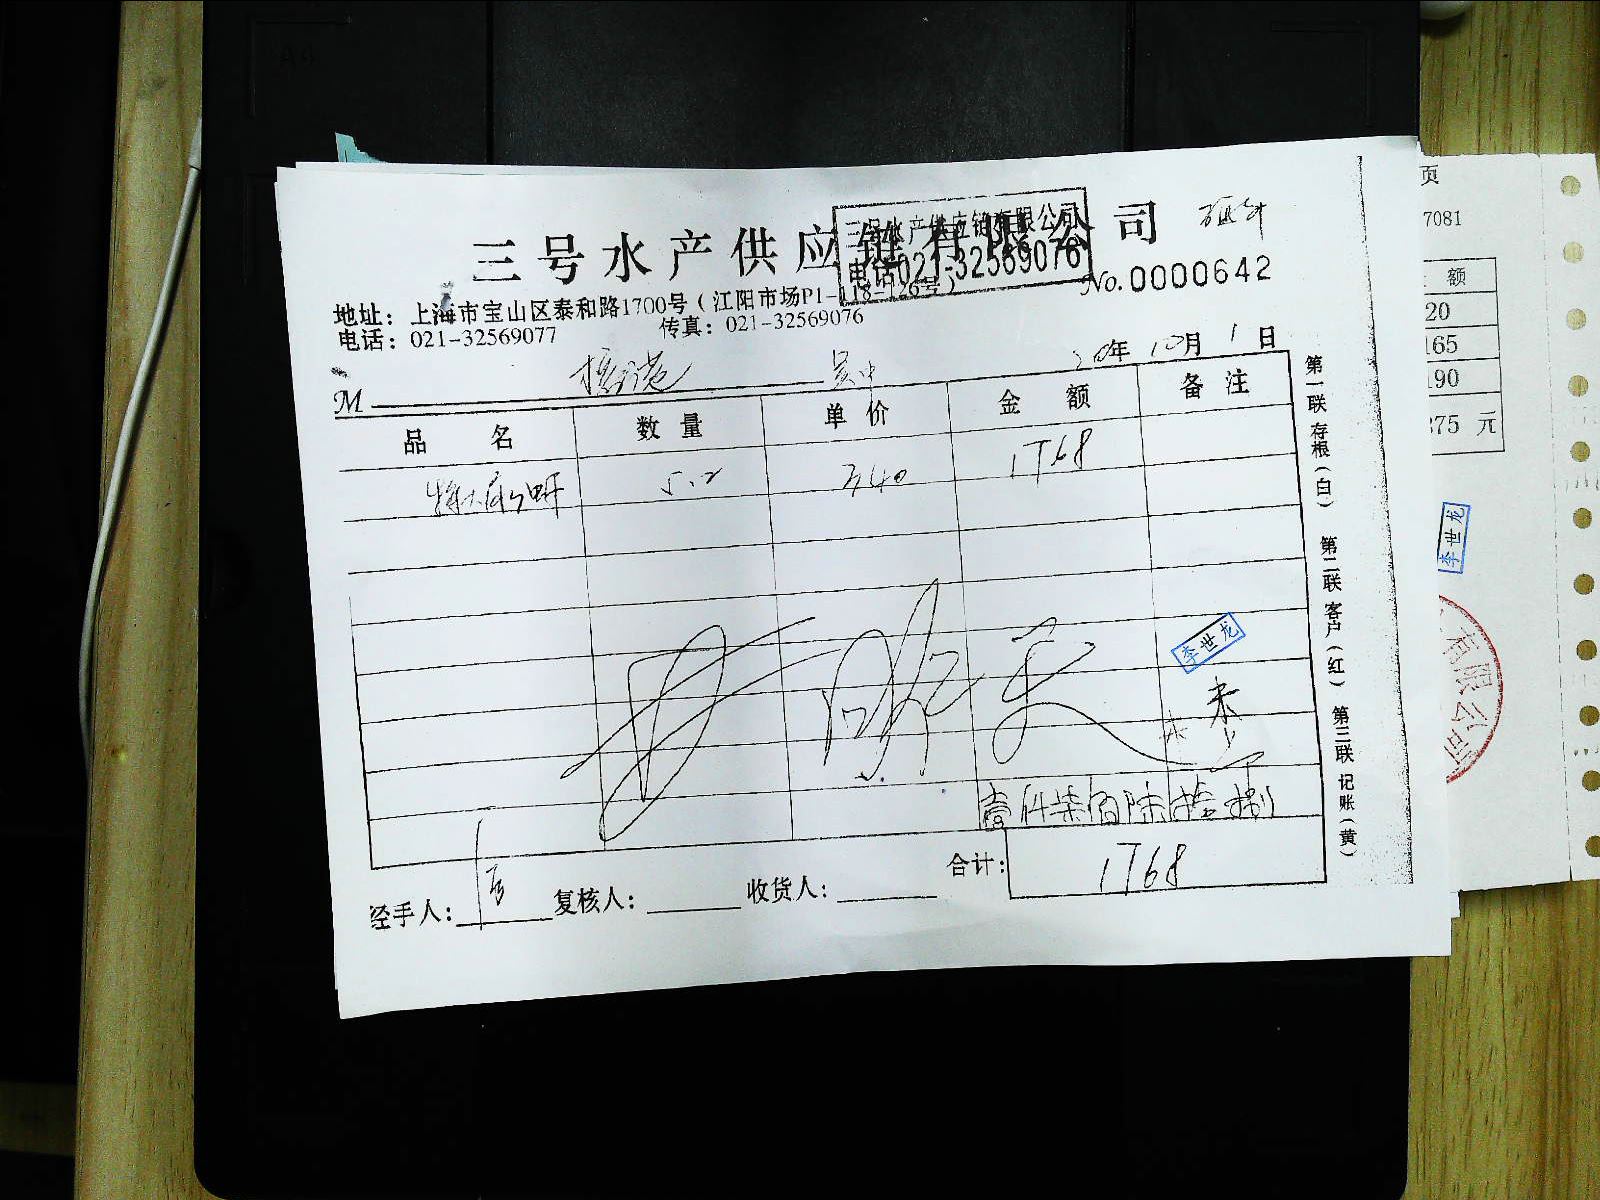 三号水产供应链有限公司
三号水产供应链有限公司
电话021-32569076
No.0000642
地址：上海市宝山区泰和路1700号（江阳市场P1-118-126号）
电话：021-32569077 传真：021-32569076
M 吴中 年 10月 1 日
品 名 数 量 单 价 金 额 备 注
5.2 340 1768
李世龙
壹仟柒佰陆拾捌
合计： 1768
经手人： 复核人： 收货人：
第一联 存根（白） 第二联 客户（红） 第三联 记账（黄）
页
7081
额
20
165
190
375 元
李世龙
有限公司